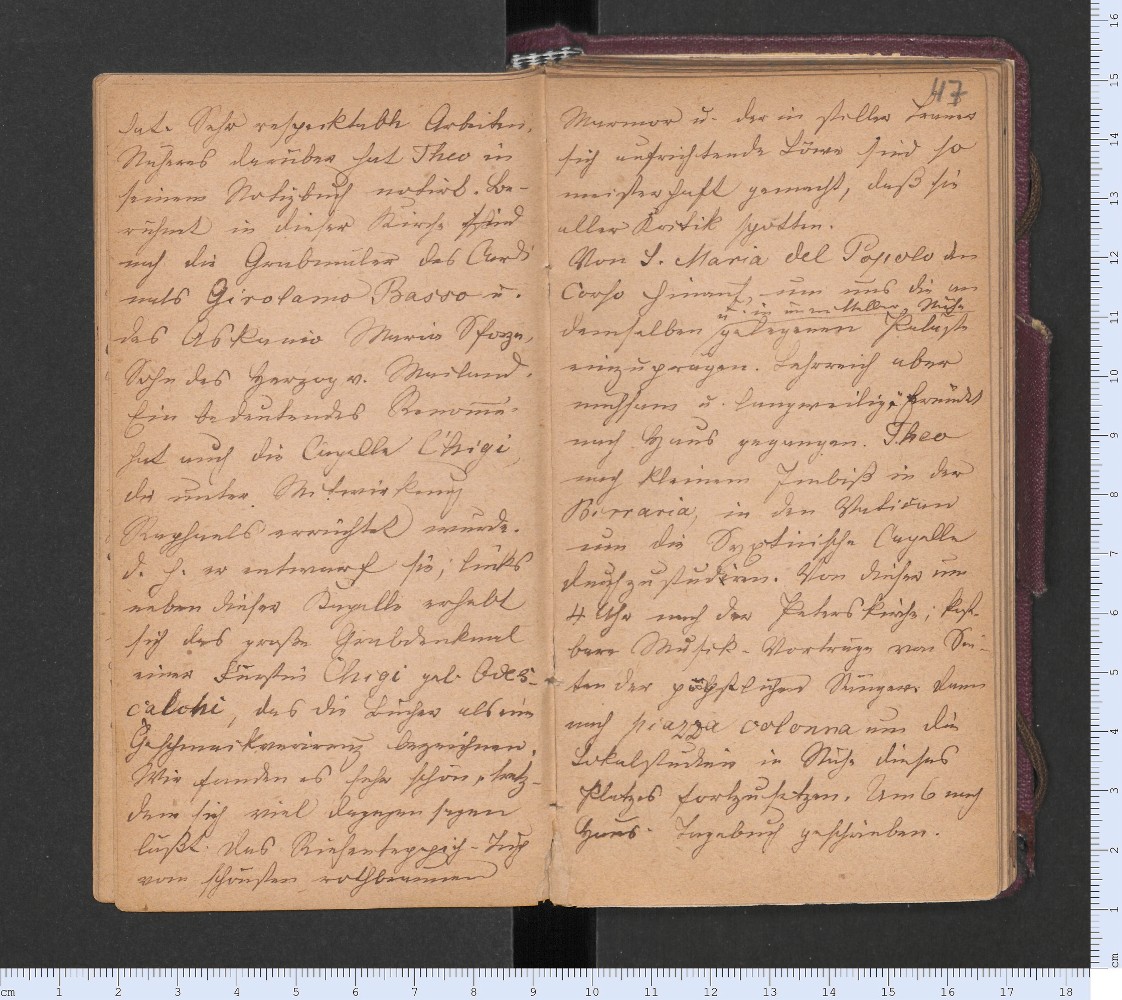 dat. Sehr respecktable Arbeiten.
Näheres darüber hat Theo in
seinem Notizbuch notirt. Be-
rühmt in dieser Kirche sind
noch die Grabmäler des Cardi
nals Girolamo Basso u.
des Askanio Maria Sforza,
Sohn des Herzog v. Mailand.
Ein bedeutendes Renomé
hat auch die Capelle Chigi,
die unter Mitwirkung
Raphaels errichtet wurde.
d. h. er entwarf sie; links
neben dieser Kapelle erhebt
sich das große Grabdenkmal
einer Fürstin Chigi geb. Odes-
calchi, das die Bücher als eine
Geschmacksverirrung bezeichnen.
Wir fanden es sehr schön, trotz-
dem sich viel dagegen sagen
läßt. Das Riesenteppich-Tuch
vom schönsten rothbraunen
47
Marmor u. der in stiller Trauer
sich aufrichtende Löwe sind so
meisterhaft gemacht, daß sie
aller Kritik spotten.
Von S. Maria del Popolo den
Corso hinauf, um uns die an
u. in unmittelb. Nähe
demselben gelegenen Paläste
einzuprägen. Lehrreich aber
mühsam u. langweilig.
nach Haus gegangen. Theo
nach kleinem Imbiß in der
Birraria, in den Vatican
um die Syxtinische Capelle
durchzustudiren. Von dieser um
4 Uhr nach der Peterskirche; kost-
bare Musik-Vorträge von Sei-
ten der päbstlichen Sänger. Dann
nach piazza colonna um die
Lokalstudien in Nähe dieses
Platzes fortzusetzen. Um 6 nach
Haus. Tagebuch geschrieben.